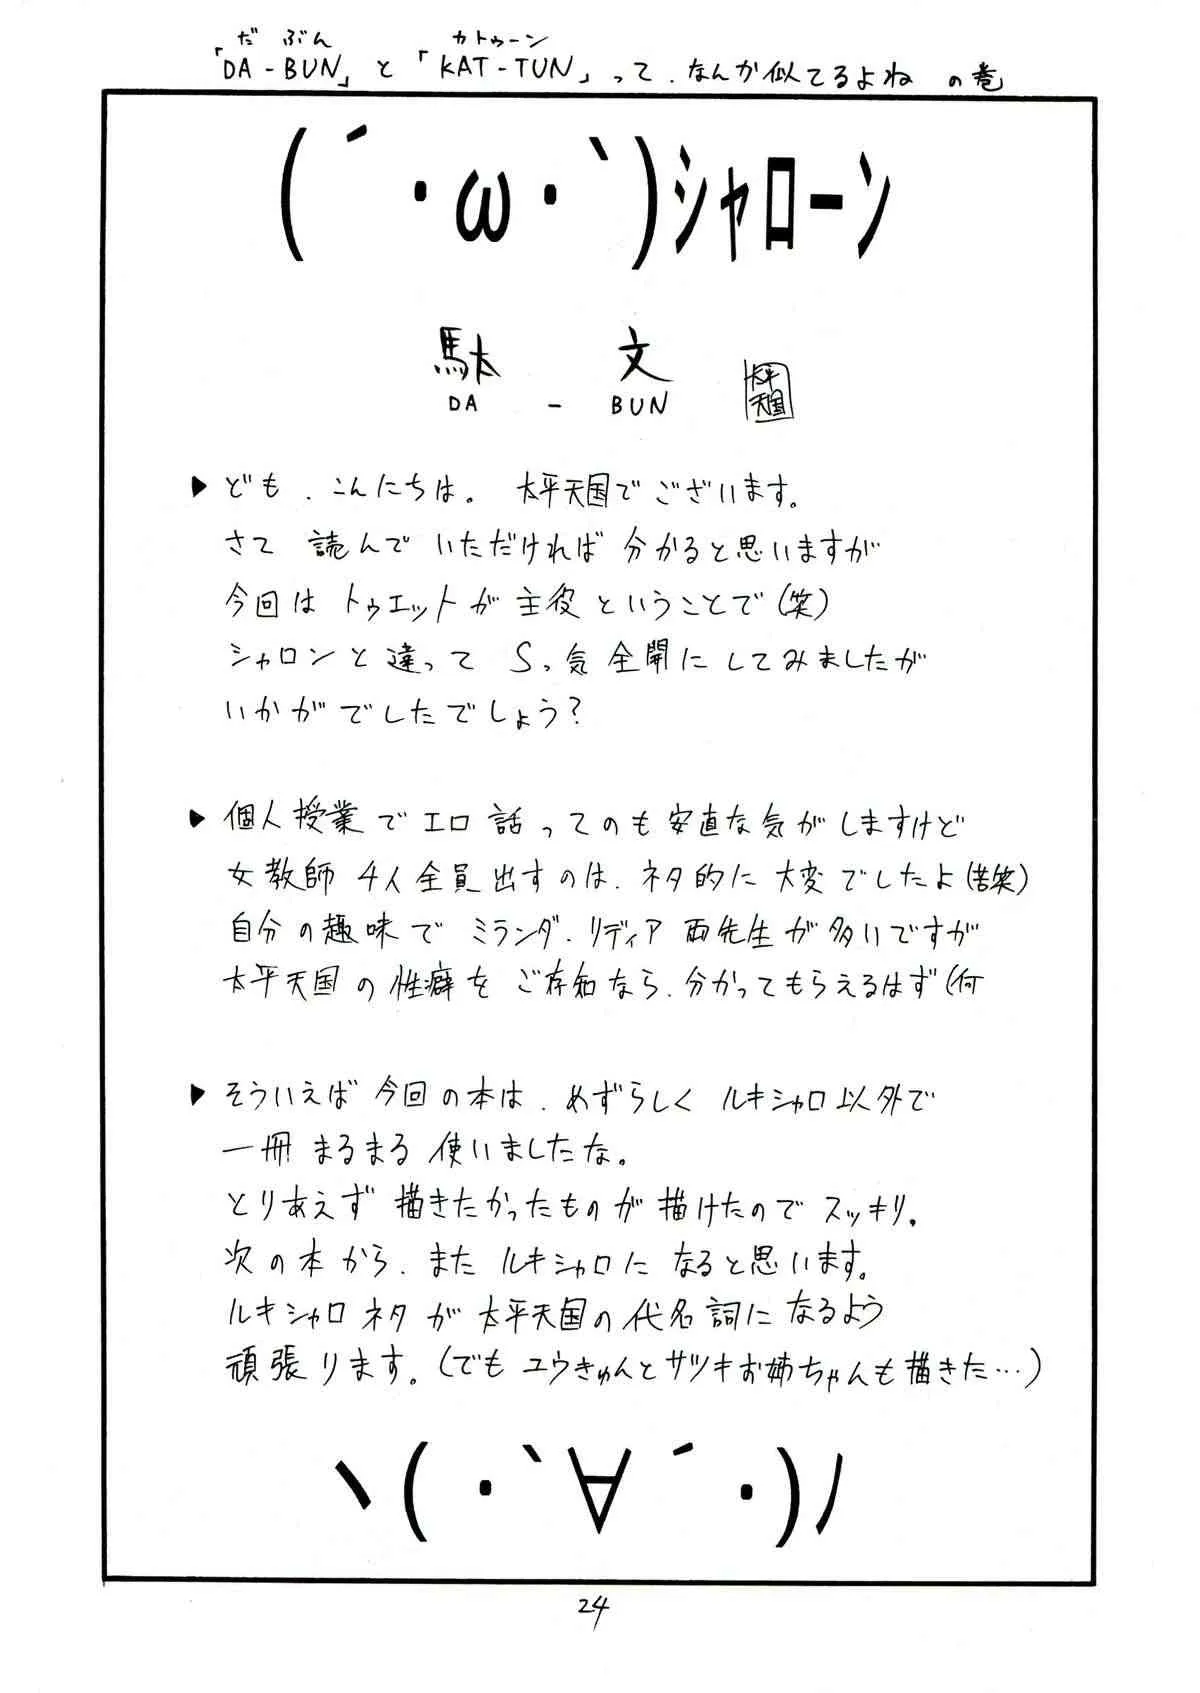 だ ぶん カトゥーン
「DA-BUN」と「KAT-TUN」って、なんか似てるよね の巻
( ´ ・ω・`)シャローン
駄 文
DA - BUN
太平
天国
▶ ども、こんにちは。 太平天国でございます。
さて 読んで いただければ 分かると思いますが
今回は トゥエットが 主役 ということで(笑)
シャロンと 違って Sっ気 全開に してみましたが
いかがでしたでしょう?
▶ 個人授業で エロ話ってのも 安直な気がしますけど
女教師 4人全員出すのは、ネタ的に 大変でしたよ(苦笑)
自分の趣味で ミランダ・リディア 両先生が多いですが
太平天国の性癖を ご存知なら、分かってもらえるはず(何
▶ そういえば 今回の本は、めずらしく ルキシャロ以外で
一冊 まるまる 使いましたな。
とりあえず 描きたかったものが 描けたので スッキリ。
次の本から、また ルキシャロに なると思います。
ルキシャロネタ が 太平天国の 代名詞に なるよう
頑張ります。(でも ユウきゅんと サツキお姉ちゃんも 描きた…)
ヽ( ・`∀´・)ノ
24